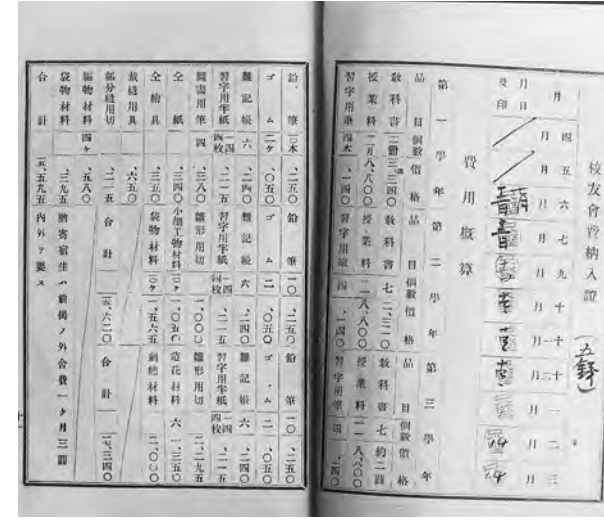 校友會費納入證
(五錢)
月 四 五 六 七 九 十 十一 十二 一 二 三
月日 月 月 月 月 月 月 月 月 月 月 月
及印
費用概算
第一學年 第二學年 第三學年
品目 個數 價格 品目 個數 價格 品目 個數 價格
教科書 三、三四〇 教科書 七 二、三一〇 教科書 七 約二圓
授業料 八、八〇〇 授業料 一一 八、八〇〇 授業料 一一 八、八〇〇
習字用筆 四本 、一四〇 習字用筆 四 、一四〇 習字用筆 四 、一四〇
鉛筆 一〇本 、二五〇 鉛筆 一〇 、二五〇 鉛筆 一〇 、二五〇
ゴム 二ケ 、〇五〇 ゴム 二 、〇五〇 ゴム 二 、〇五〇
雜記帳 六 、二四〇 雜記帳 六 、二四〇 雜記帳 六 、二四〇
習字用半紙 一四四枚 、二一五 習字用半紙 一四四 、二一五 習字用半紙 一四四枚 、二一五
圖畵用筆 四 、三八〇 雛形用切 一、〇〇〇 雛形用切 二、二九五
仝紙 、三四〇 小細工物材料 一、〇五〇 造花材料 六 一、三五〇
仝繪具 、三五〇 袋物材料 、五六五 刺繍材料 二、〇〇〇
裁縫用具 、六五〇
部分縫用切 、二一五 合計 一五、六二〇 合計 一七、三四〇
編物材料 四ケ 、五八〇
袋物材料 、三九五 贈寄宿生ハ前揭ノ外舍費一ケ月三圓
合計 一五、五九五 内外ヲ要ス